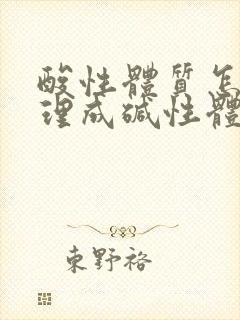 酸性體質怎
理成碱性體
東野裕